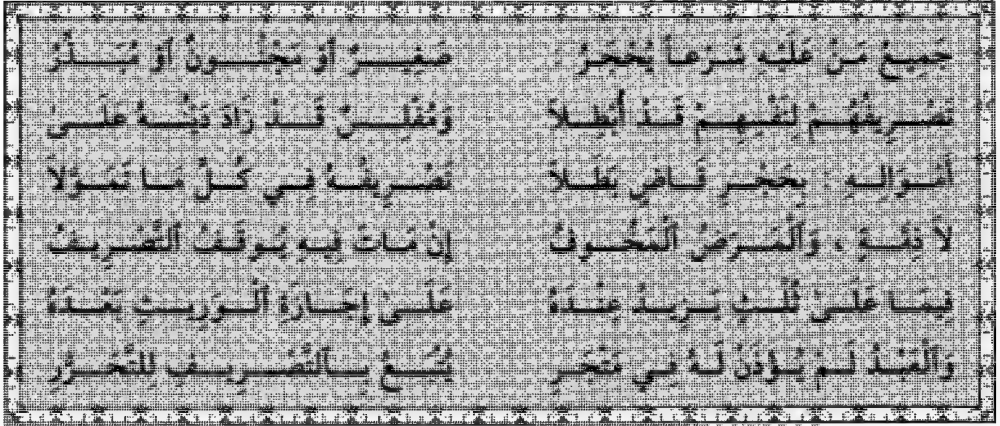 جَمِيعُ مَنْ عَلَيْهِ شَرْعاً يُحْجَرُ صَغِيرٌ أَوْ مَجْنُونٌ أَوْ مُبَذِّرُ
تَصْرِيفُهُمْ لِنَفْسِهِمْ قَدْ أُبْطِلاَ وَمُفْلِسٌ قَدْ زَادَ دَيْنُهُ عَلَى
أَمْوَالِهِ بِحَجْرِ قَاضٍ بَطَلاَ تَصْرِيفُهُ فِي كُلِّ مَا تَمَوَّلاَ
لاَ ذِمَّةٍ ، وَٱلْمَرَضُ ٱلْمَخُوفُ إِنْ مَاتَ فِيهِ يُوقَفُ ٱلتَّصْرِيفُ
فِيمَا عَلَىٰ ثُلْثٍ يَزِيدُ عِنْدَهُ عَلَىٰ إِجَازَةِ ٱلْوَرِيثِ بَعْدَهُ
وَٱلْعَبْدُ لَمْ يُؤْذَنْ لَهُ فِي مَتْجَرِ يُتْبَعُ بِٱلتَّصْرِيفِ لِلتَّحَرُّرِ